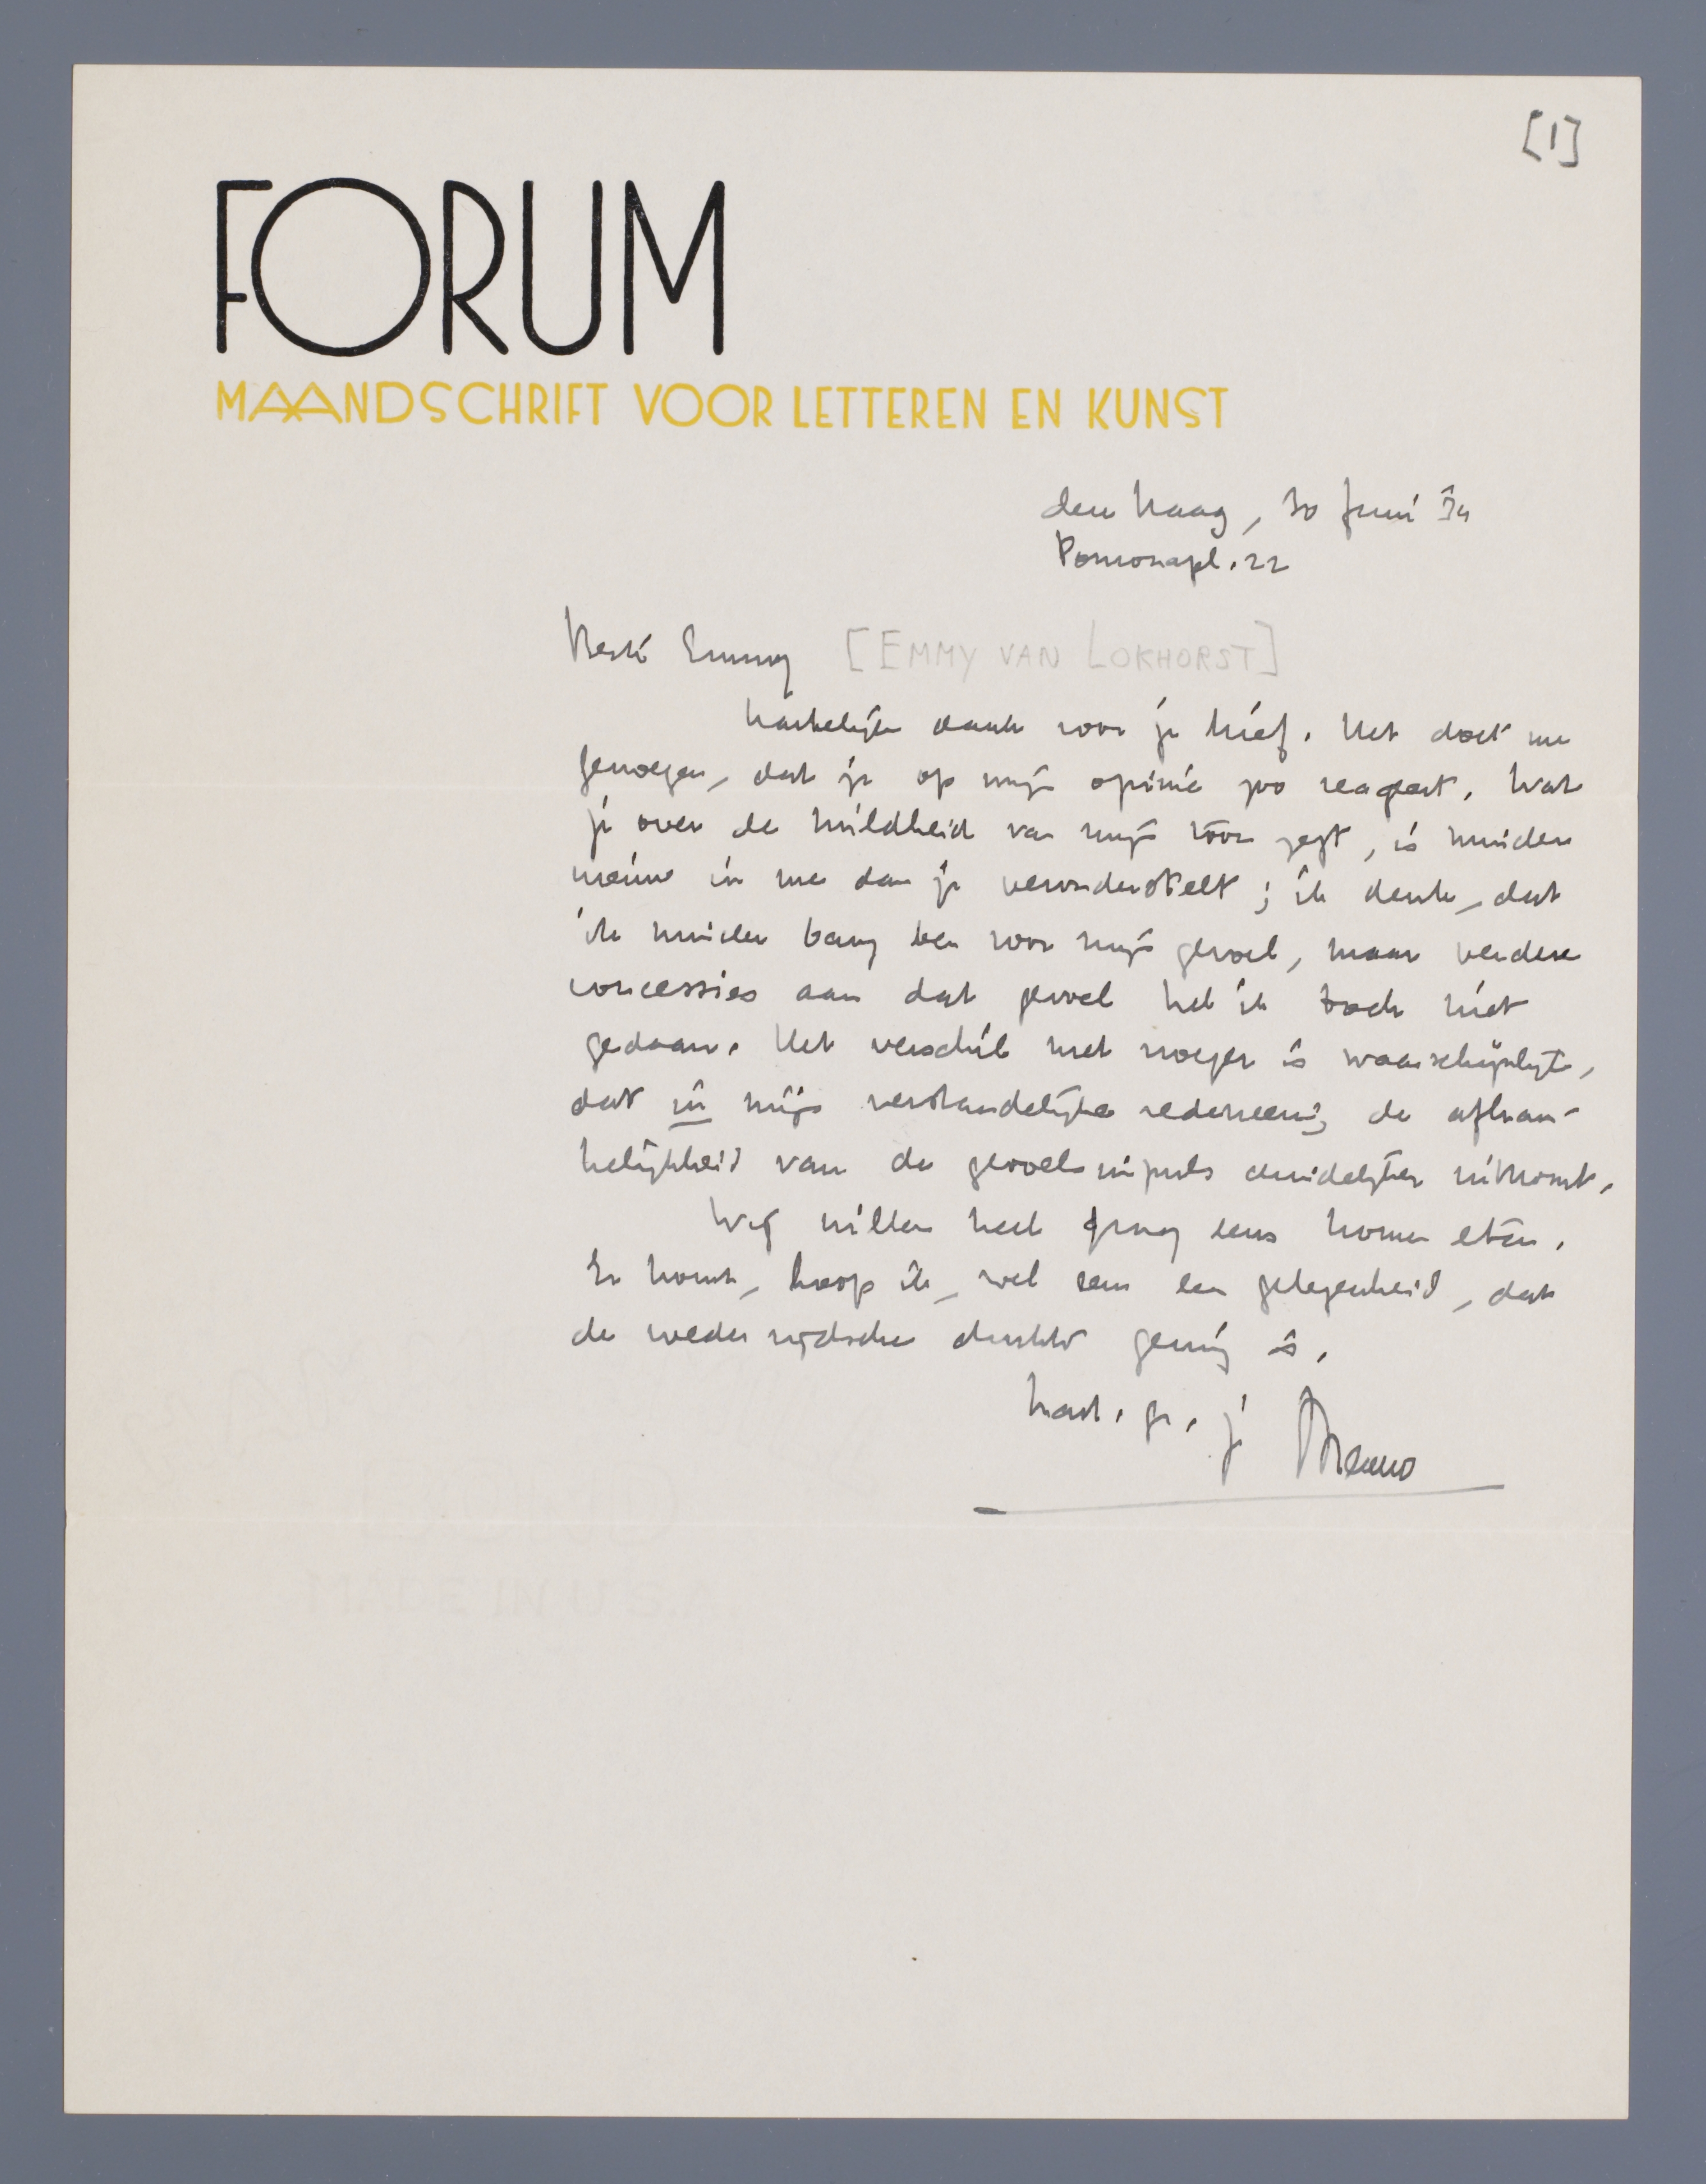 [1]
FORUM
MAANDSCHRIFT VOOR LETTEREN EN KUNST
den Haag, 30 Juni 34
Pomonapl. 22
Beste Emmy [EMMY VAN LOKHORST]
Hartelijk dank voor je brief. Het doet me
genoegen, dat je op mijn opinie zoo reageert. Wat
je over de mildheid van mijn toon zegt, is minder
nieuw in me dan je veronderstelt; ik denk, dat
ik minder bang ben voor mijn gevoel, maar verdere
concessies aan dat gevoel heb ik toch niet
gedaan. Het verschil met vroeger is waarschijnlijk,
dat in mijn verstandelijke redeneering de afhan-
kelijkheid van de gevoelsimpuls duidelijker uitkomt.
Wij willen heel graag eens komen eten.
Er komt, hoop ik, wel eens een gelegenheid, dat
de wederzijdsche drukte gering is.
hart. gr. je Menno